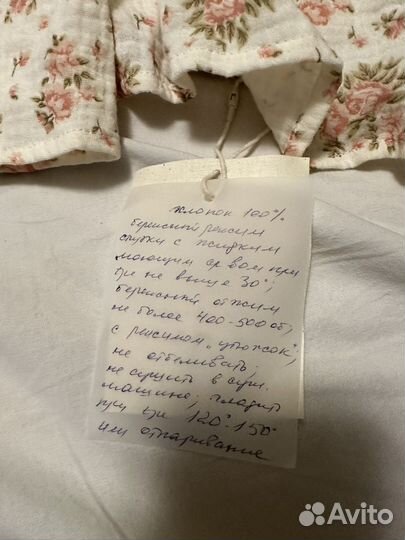 хлопок 100%
бережный режим
стирки с жидким
моющим ср-вом при
t не выше 30°;
бережный отжим
не более 400-500 об;
с режимом „утюжок";
не отбеливать;
не сушить в суш.
машине; гладить
при t 120°-150°
или отпаривание
Avito